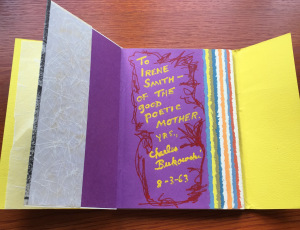 To
IRENE
SMITH—
OF THE
GOOD
POETIC
MOTHER.
YES.,
Charles
Bukowski
8-3-63